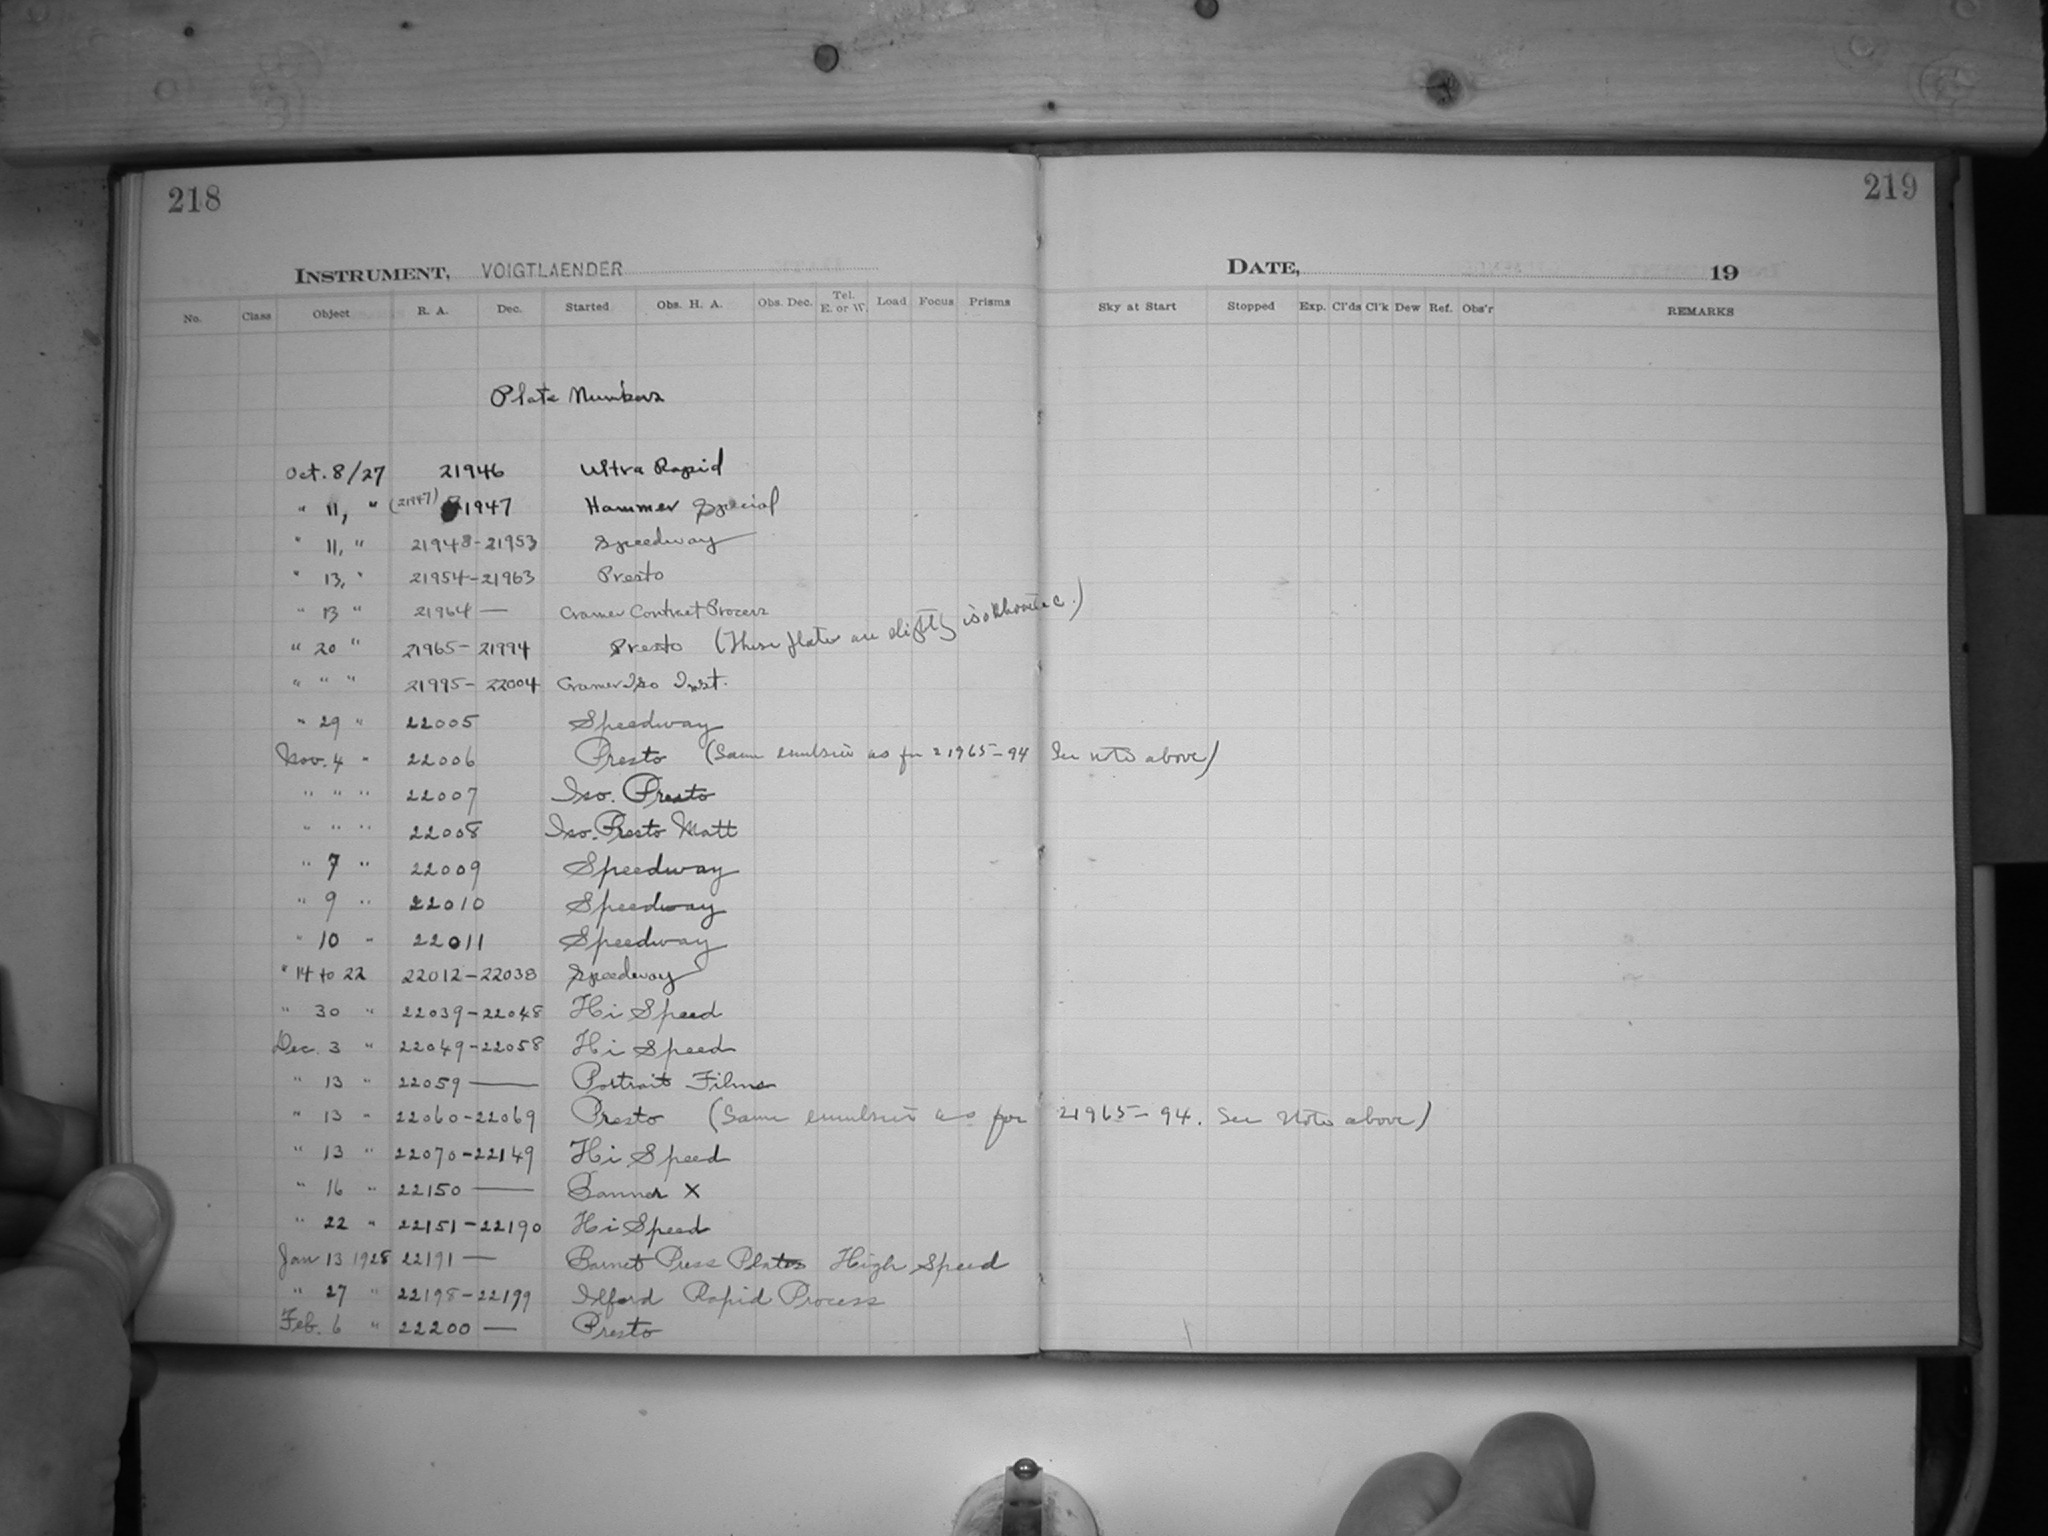 218
219
INSTRUMENT, VOIGTLAENDER
DATE, 19
No. Class Object R. A. Dec. Started Obs. H. A. Obs. Dec. Tel. E. or W. Load Focus Prisms Sky at Start Stopped Exp. Cl'ds Cl'k Dew Ref. Obs'r REMARKS
Plate Numbers
Oct. 8/27 21946 Ultra Rapid
" 11, " (21947) 21947 Hammer Special
" 11, " 21948-21953 Speedway
" 13, " 21954-21963 Presto
" 13 " 21964 — Cramer Contrast Process
" 20 " 21965-21994 Presto (These plates are slightly isochromatic.)
" " " 21995-22004 Cramer Iso Inst.
" 29 " 22005 Speedway
Nov. 4 " 22006 Presto (Same emulsion as for 21965-94 See note above)
" " " 22007 Iso. Presto
" " " 22008 Iso. Presto Matt
" 7 " 22009 Speedway
" 9 " 22010 Speedway
" 10 " 22011 Speedway
" 14 to 22 22012-22038 Speedway
" 30 " 22039-22048 Hi Speed
Dec. 3 " 22049-22058 Hi Speed
" 13 " 22059 — Portrait Films
" 13 " 22060-22069 Presto (Same emulsion as for 21965-94. See Note above)
" 13 " 22070-22149 Hi Speed
" 16 " 22150 — Banner X
" 22 " 22151-22190 Hi Speed
Jan 13 1928 22191 — Barnet Press Plates High Speed
" 27 " 22198-22199 Ilford Rapid Process
Feb. 6 " 22200 — Presto